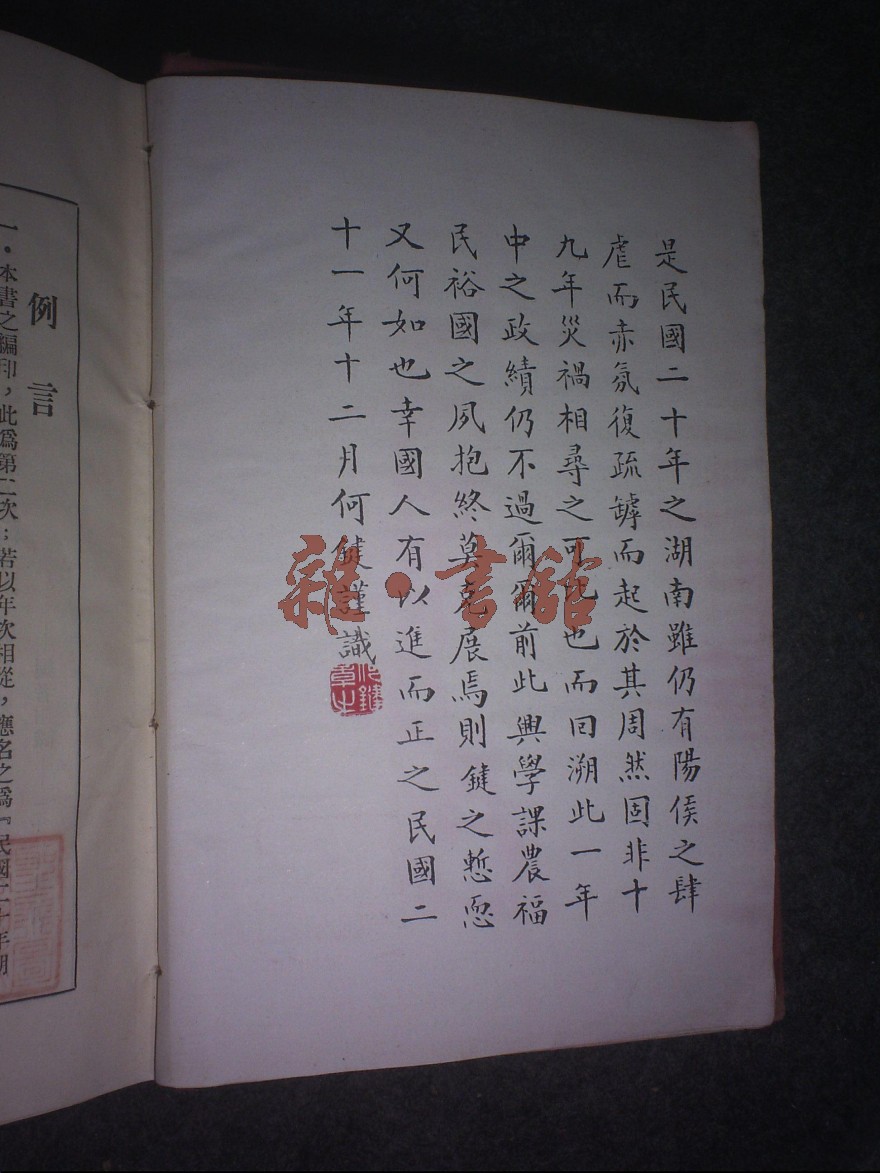 是民國二十年之湖南雖仍有陽侯之肆
虐而赤氛復疏罅而起於其周然固非十
九年災禍相尋之可比也而回溯此一年
中之政績仍不過爾爾前此興學課農福
民裕國之夙抱終莫克展焉則鍵之慙恧
又何如也幸國人有以進而正之民國二
十一年十二月何鍵謹識
雜·書館
例言
一。本書之編印，此爲第二次；若以年次相從，應名之爲『民國二十年湖